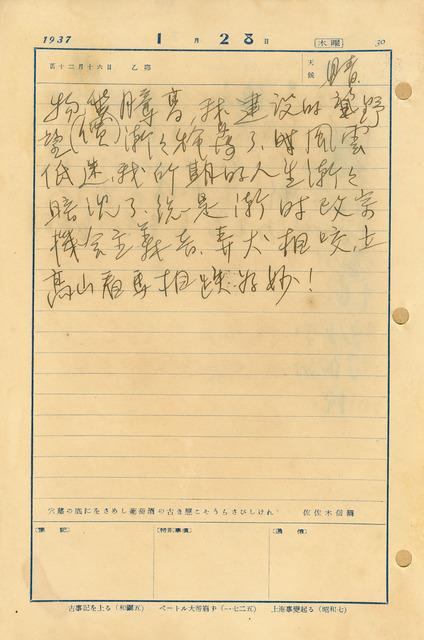 1937 1月28日 [木曜] 30
舊十二月十六日 乙卯 天候 晴
物價騰高、我建设的
漸々 了、時風雲
低迷、我的期的人生漸々
暗淡了、统一是漸时改宗
機会主義者、弄犬相咬、立
高山看馬相踢好妙！
穴藏の底にをさめし葡萄酒の古き歴こそうらさびしけれ 佐佐木信綱
〔豫記〕 〔特別事項〕 〔通信〕
古事記を上る（和銅五） ペートル大帝崩ず（一七二五） 上海事變起る（昭和七）